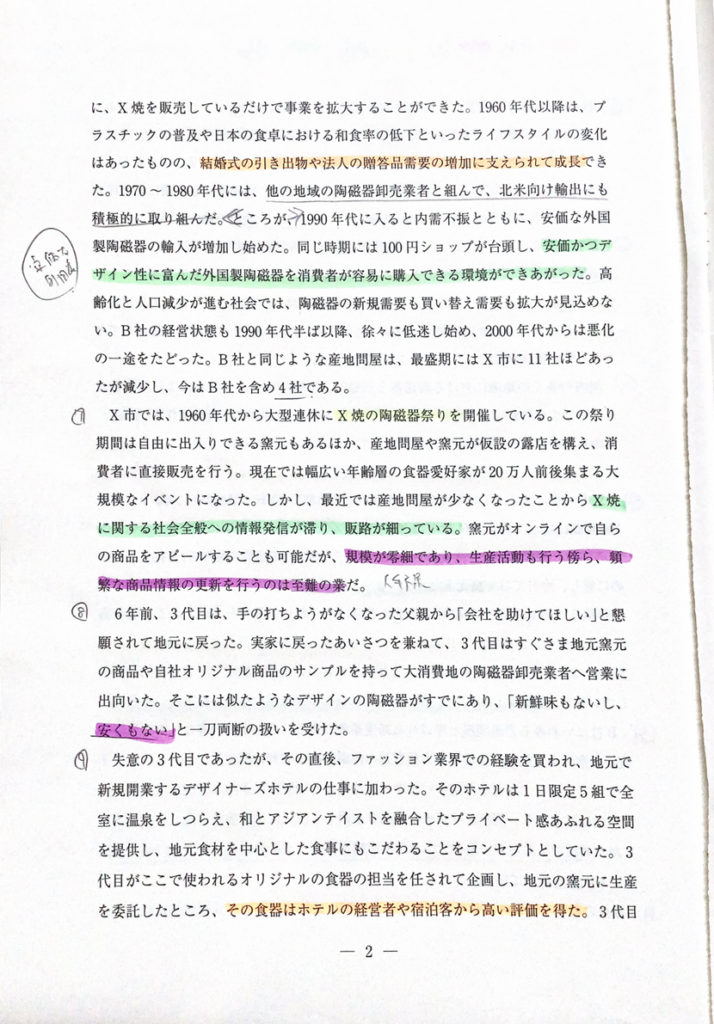 に、X焼を販売しているだけで事業を拡大することができた。1960年代以降は、プ
ラスチックの普及や日本の食卓における和食率の低下といったライフスタイルの変化
はあったものの、結婚式の引き出物や法人の贈答品需要の増加に支えられて成長でき
た。1970～1980年代には、他の地域の陶磁器卸売業者と組んで、北米向け輸出にも
積極的に取り組んだ。ところが、1990年代に入ると内需不振とともに、安価な外国
製陶磁器の輸入が増加し始めた。同じ時期には100円ショップが台頭し、安価かつデ
ザイン性に富んだ外国製陶磁器を消費者が容易に購入できる環境ができあがった。高
齢化と人口減少が進む社会では、陶磁器の新規需要も買い替え需要も拡大が見込めな
い。B社の経営状態も1990年代半ば以降、徐々に低迷し始め、2000年代からは悪化
の一途をたどった。B社と同じような産地問屋は、最盛期にはX市に11社ほどあっ
たが減少し、今はB社を含め4社である。
⑦ X市では、1960年代から大型連休にX焼の陶磁器祭りを開催している。この祭り
期間は自由に出入りできる窯元もあるほか、産地問屋や窯元が仮設の露店を構え、消
費者に直接販売を行う。現在では幅広い年齢層の食器愛好家が20万人前後集まる大
規模なイベントになった。しかし、最近では産地問屋が少なくなったことからX焼
に関する社会全般への情報発信が滞り、販路が細っている。窯元がオンラインで自ら
の商品をアピールすることも可能だが、規模が零細であり、生産活動も行う傍ら、頻
繁な商品情報の更新を行うのは至難の業だ。
⑧ 6年前、3代目は、手の打ちようがなくなった父親から「会社を助けてほしい」と懇
願されて地元に戻った。実家に戻ったあいさつを兼ねて、3代目はすぐさま地元窯元
の商品や自社オリジナル商品のサンプルを持って大消費地の陶磁器卸売業者へ営業に
出向いた。そこには似たようなデザインの陶磁器がすでにあり、「新鮮味もないし、
安くもない」と一刀両断の扱いを受けた。
⑨ 失意の3代目であったが、その直後、ファッション業界での経験を買われ、地元で
新規開業するデザイナーズホテルの仕事に加わった。そのホテルは1日限定5組で全
室に温泉をしつらえ、和とアジアンテイストを融合したプライベート感あふれる空間
を提供し、地元食材を中心とした食事にもこだわることをコンセプトとしていた。3
代目がここで使われるオリジナルの食器の担当を任されて企画し、地元の窯元に生産
を委託したところ、その食器はホテルの経営者や宿泊客から高い評価を得た。3代目
— 2 —